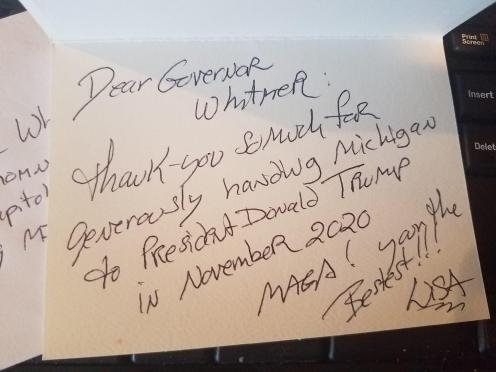 Dear Governor
Whitmer:
Thank-you so much for
generously handing Michigan
to President Donald Trump
in November 2020
MAGA! your the
Bestest!!!
LISA
Wh
Print
Screen
Insert
Delet